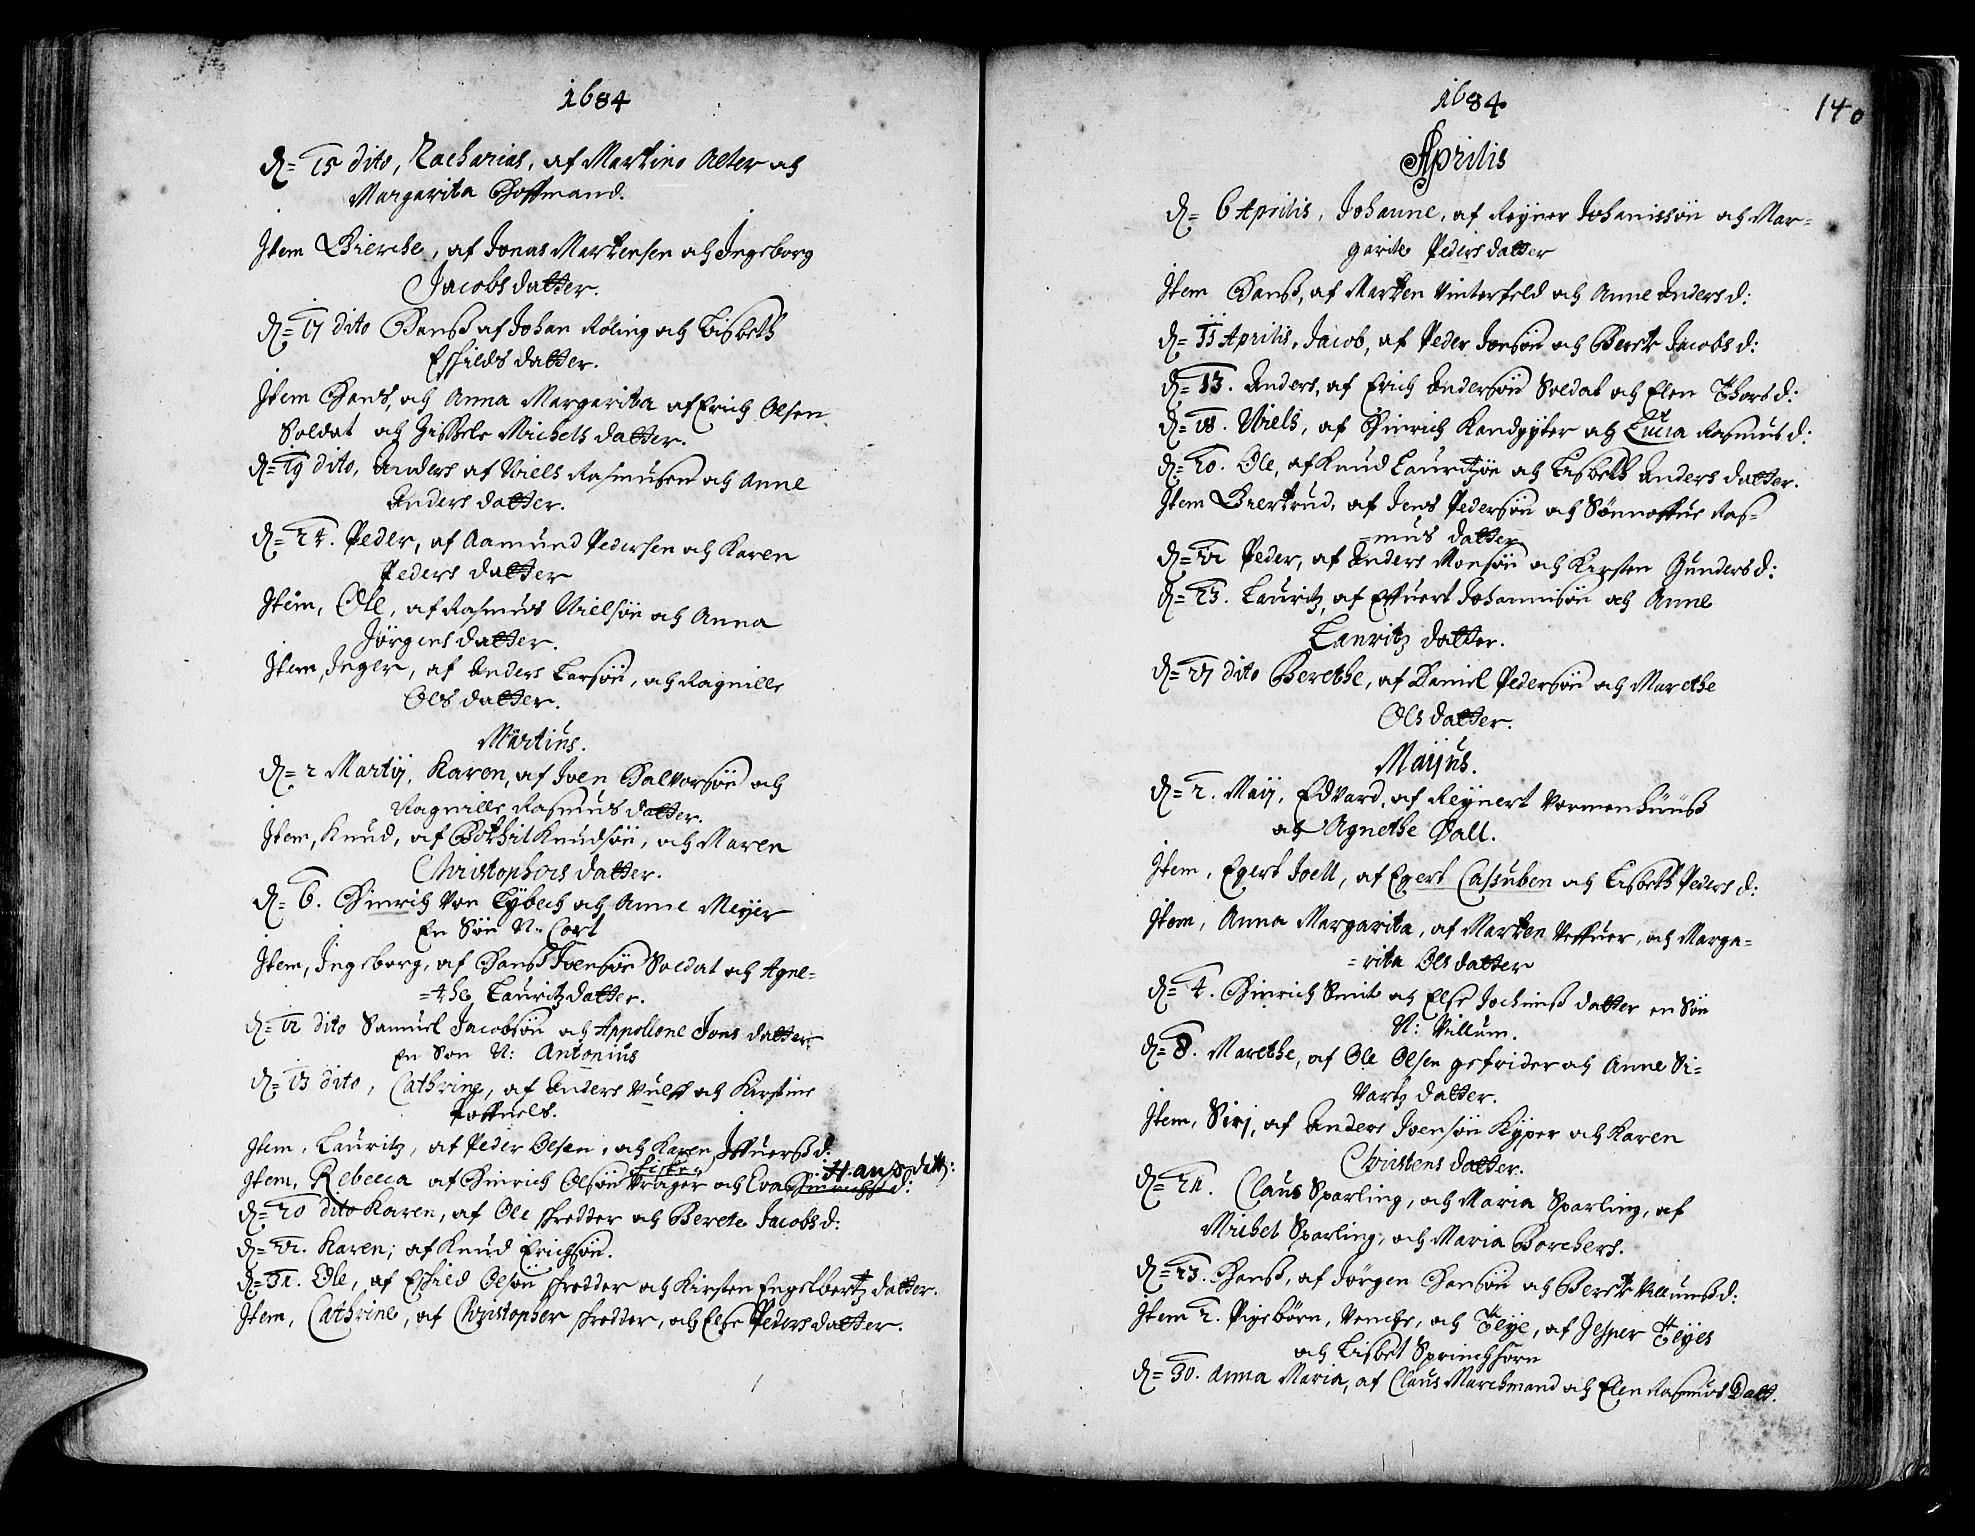 1684
D= 15 dito, Zacharias, af Martino Alter och
Margarita Hoffmand.
Item Bierche, af Jonas Martensen och Ingeborg
Jacobs datter.
D= 17 dito Hanss af Johan Röling och Lisbeth
Eskilds datter.
Item Hans, och Anna Margarita af Erich Olsen
Soldat och Zissele Michels datter.
D= 19 dito, Anders af Niels Rasmusen och Anne
Anders datter.
D= 24. Peder, af Aamund Pedersen och Karen
Peders datter
Item, Ole, af Rasmus Nielsön och Anna
Jörgens datter.
Item, Inger, af Anders Larsön, och Ragnille
Ols datter.
Martius.
D= 2 Martij, Karen, af Iven Halvorsön och
Ragnille Rasmus datter.
Item, Knud, af Bothil Knudsön, och Maren
Christophers datter.
D= 6. Hinrich von Lybech och Anne Meyer
En Sön N: Cort
Item, Ingeborg, af Hanss Ivensön Soldat och Agne=
=the Lauritz datter.
D= 12 dito Samuel Jacobsön och Appolione Jons datter
En Son N: Antonius
D= 13 dito, Cathrine, af Anders Vulff och Kirstine
Poffuels.
Item, Lauritz, af Peder Olsen, och Karen Iffuerss d:
Item, Rebecca af Hinrich Olsön Fisker Prager och Eva Hinrichs d: Hans ditt:
D= 20 dito Karen, af Ole skredder och Berete Jacobs d:
D= 21. Karen; af Knud Erichsön.
D= 31. Ole, af Eskild Olsön skredder och Kirsten Engelbertz datter.
Item, Cathrine, af Christopher skredder, och Else Peders datter.
1684
140
Aprilis
D= 6 Aprilis, Johanne, af Reyner Johanissön och Mar=
garite Peders datter
Item Hanss, af Marten Vinterfeld och Anne Anders d:
D= 11 Aprilis, Jacob, af Peder Jonsön och Berete Jacobs d:
D= 13. Anders, af Erich Andersön Soldat och Elen Thors d:
D= 18. Niels, af Hinrich Kandgyter och Lucia Rasmus d:
D= 20. Ole, af Knud Lauritzön och Lisbeth Anders datter.
Item Giertrud, af Jens Pedersön och Sönnoffue Ras=
=mus datter
D= 21 Peder, af Anders Monsön och Kirsten Gunders d:
D= 23. Lauritz, af Effuert Johannisön och Anne
Lauritz datter.
D= 27 dito Berethe, af Daniel Pedersön och Marethe
Ols datter.
Maijus.
D= 2. Maij, Edvard, af Reynert Vormenhuuss
och Agnethe Dall.
Item, Egert Joell, af Egert Cassuben och Lisbeth Peders d:
Item, Anna Margarita, af Marten Veffuer, och Marga=
=rita Ols datter
D= 4. Hinrich Smit och Else Jochimss datter en Sön
N: Villum.
D= 8. Marethe, af Ole Olsen gefrider och Anne Si=
vartz datter.
Item, Siri, af Anders Ivensön Kyper och Karen
Christens datter.
D= 21. Claus Sparling, och Maria Sparling, af
Michel Sparling, och Maria Borchers.
D= 23. Hanss, af Jörgen Hansön och Berete Villumss d:
Item 2. Pigebörn, Venche, och Teye, af Jesper Teijes
och Lisbet Sprinchhorn
D= 30. Anna Maria, af Claus Marchmand och Elen Rasmus Datt.